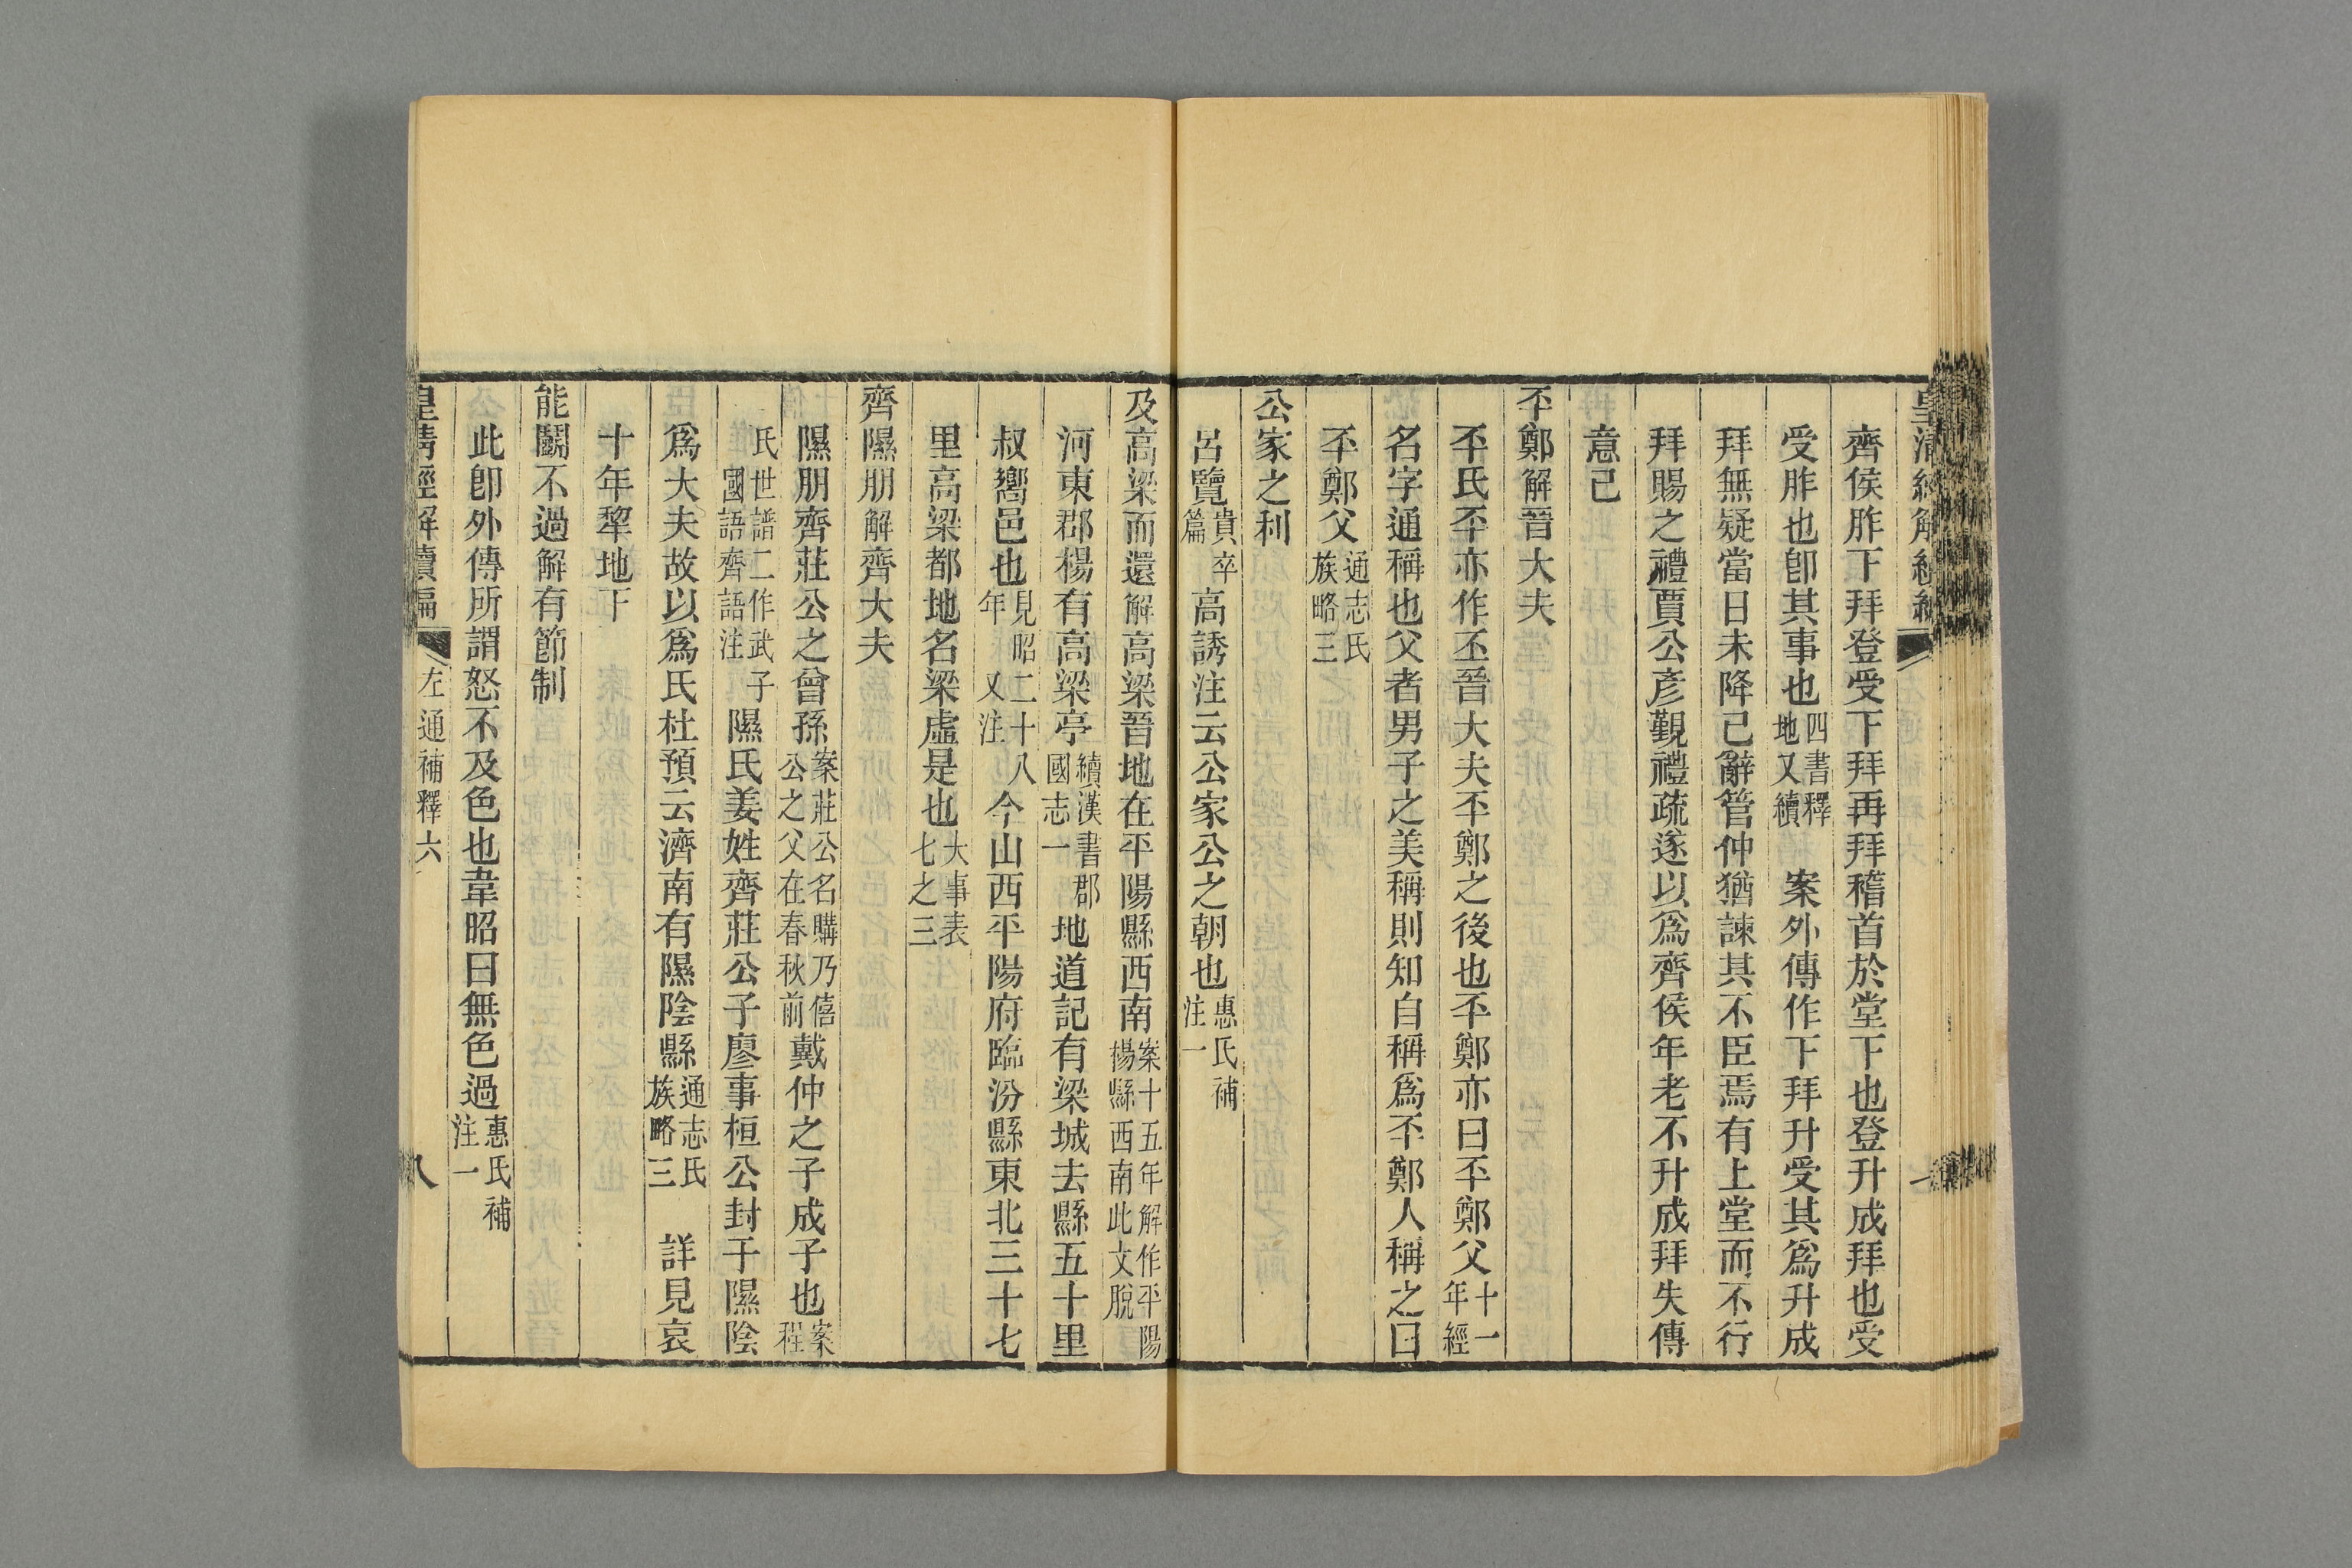 齊侯胙下拜登受下拜再拜稽首於堂下也登升成拜也受
受胙也卽其事也四書釋地又續 案外傳作下拜升受其爲升成
拜無疑當日未降己辭管仲猶諫其不臣焉有上堂而不行
拜賜之禮賈公彥覲禮疏遂以爲齊侯年老不升成拜失傳
意已
㔻鄭解晉大夫
㔻氏㔻亦作丕晉大夫㔻鄭之後也㔻鄭亦曰㔻鄭父十一年經
名字通稱也父者男子之美稱則知自稱爲㔻鄭人稱之曰
㔻鄭父通志氏族略三
公家之利
呂覽貴卒篇高誘注云公家公之朝也惠氏補注一
及高梁而還解高梁晉地在平陽縣西南案十五年解作平陽楊縣西南此文脫
河東郡楊有高梁亭續漢書郡國志一地道記有梁城去縣五十里
叔嚮邑也見昭二十八年又注今山西平陽府臨汾縣東北三十七
里高梁都地名梁虛是也大事表七之三
齊隰朋解齊大夫
隰朋齊莊公之曾孫案莊公名購乃僖公之父在春秋前戴仲之子成子也案程
氏世譜二作武子國語齊語注隰氏姜姓齊莊公子廖事桓公封于隰陰
爲大夫故以爲氏杜預云濟南有隰陰縣通志氏族略三 詳見哀
十年犂地下
能鬬不過解有節制
此卽外傳所謂怒不及色也韋昭曰無色過惠氏補注一
皇清經解續編 左通補釋六 八